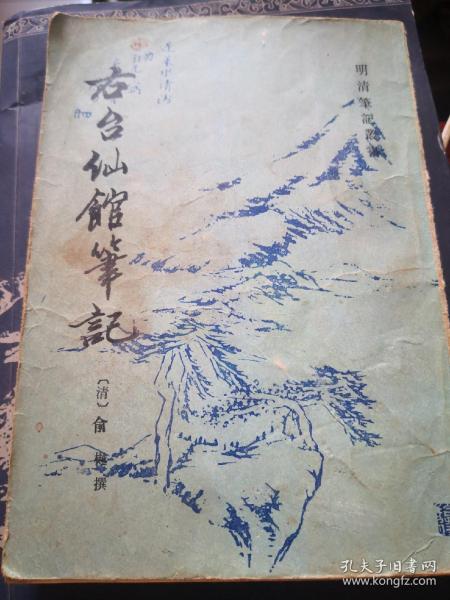 明清筆記叢書
右台仙館筆記
〔清〕俞樾撰
孔夫子旧书网
www.kongfz.com